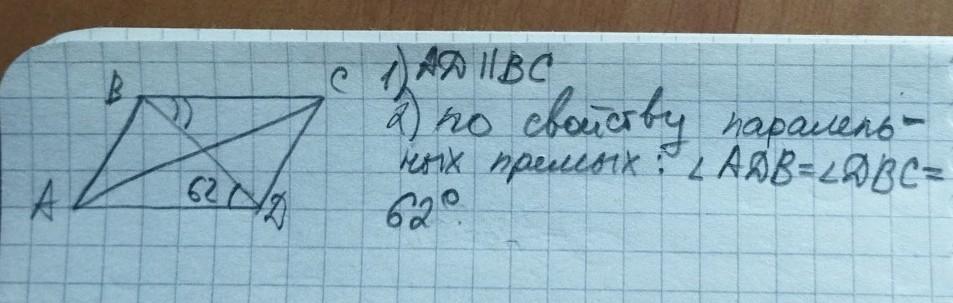 B
C
A
62
D
1) AD || BC
2) по свойству паралель-
ных прямых: ∠ADB=∠DBC=
62°.